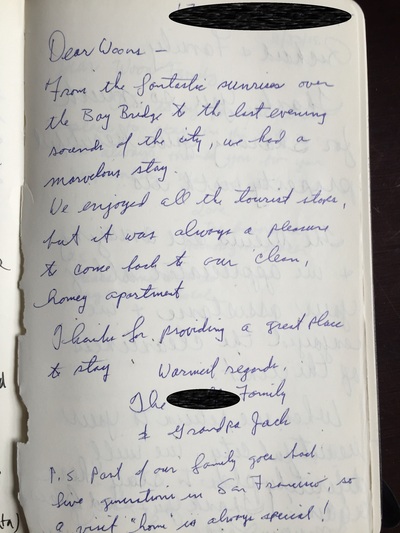 Dear Woons –
From the fantastic sunrises over
the Bay Bridge to the last evening
sounds of the city, we had a
marvelous stay.
We enjoyed all the tourist stores,
but it was always a pleasure
to come back to our clean,
homey apartment
Thanks for providing a great place
to stay Warmest regards,
The Family
& Grandpa Jack
P.S. Part of our family goes back
five generations in San Francisco, so
a visit "home" is always special!